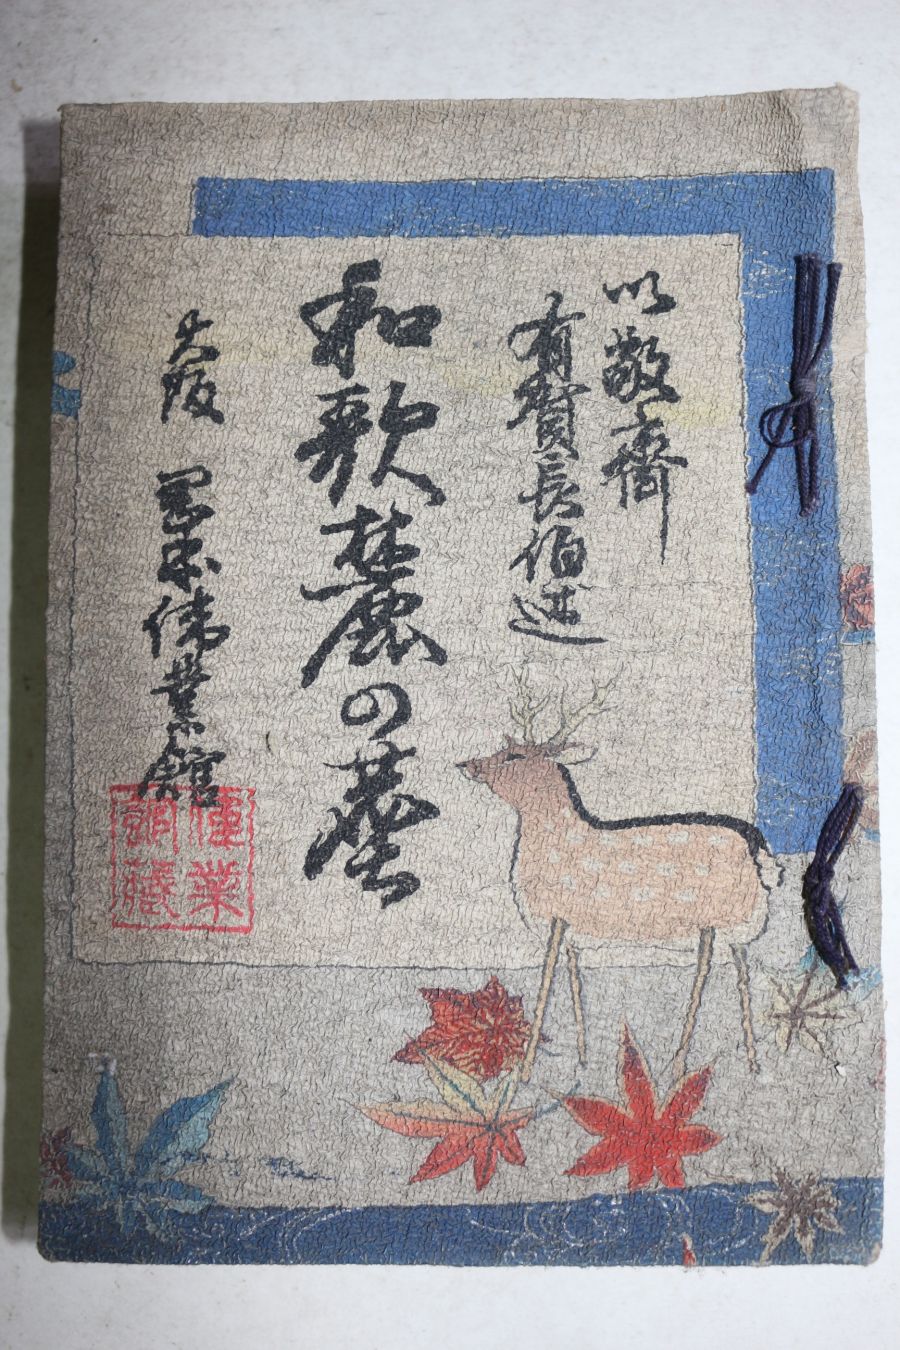 以敬齋
有賀長伯述
和歌麓の塵
大阪 岡本偉業館
偉業
館蔵